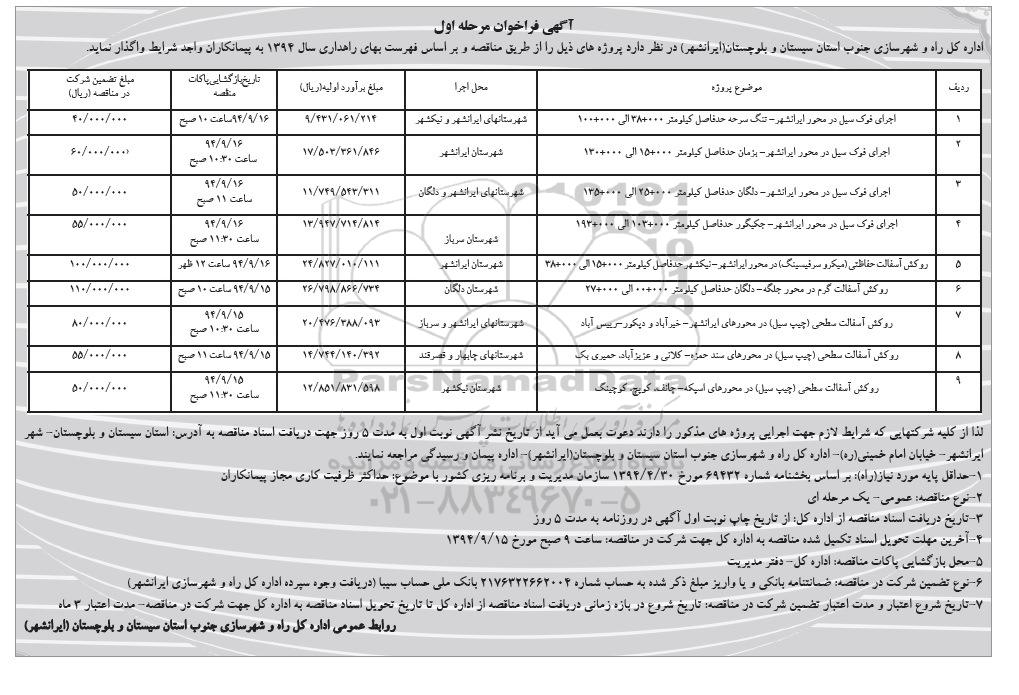 آگهی فراخوان مرحله اول
اداره کل راه و شهرسازی جنوب استان سیستان و بلوچستان(ایرانشهر) در نظر دارد پروژه های ذیل را از طریق مناقصه و بر اساس فهرست بهای راهداری سال ۱۳۹۴ به پیمانکاران واجد شرایط واگذار نماید.
ردیف | موضوع پروژه | محل اجرا | مبلغ برآورد اولیه(ریال) | تاریخ‌بازگشایی‌پاکات مناقصه | مبلغ تضمین شرکت در مناقصه (ریال)
۱ | اجرای فوک سیل در محور ایرانشهر- تنگ سرحه حدفاصل کیلومتر ۰۰۰+۳۸ الی ۰۰۰+۱۰۰ | شهرستانهای ایرانشهر و نیکشهر | ۹/۴۳۱/۰۶۱/۲۱۴ | ۹۴/۹/۱۶ساعت ۱۰ صبح | ۴۰/۰۰۰/۰۰۰
۲ | اجرای فوک سیل در محور ایرانشهر- بزمان حدفاصل کیلومتر ۰۰۰+۱۵ الی ۰۰۰+۱۳۰ | شهرستان ایرانشهر | ۱۷/۵۰۳/۳۶۱/۸۴۶ | ۹۴/۹/۱۶ ساعت ۱۰:۳۰ صبح | ۶۰/۰۰۰/۰۰۰
۳ | اجرای فوک سیل در محور ایرانشهر- دلگان حدفاصل کیلومتر ۰۰۰+۲۵ الی ۰۰۰+۱۳۵ | شهرستانهای ایرانشهر و دلگان | ۱۱/۷۴۹/۵۴۳/۳۱۱ | ۹۴/۹/۱۶ ساعت ۱۱ صبح | ۵۰/۰۰۰/۰۰۰
۴ | اجرای فوک سیل در محور ایرانشهر- جکیگور حدفاصل کیلومتر ۰۰۰+۱۰۳ الی ۰۰۰+۱۹۳ | شهرستان سرباز | ۱۳/۹۴۷/۷۱۴/۸۱۴ | ۹۴/۹/۱۶ ساعت ۱۱:۳۰ صبح | ۵۵/۰۰۰/۰۰۰
۵ | روکش آسفالت حفاظتی (میکرو سرفیسینگ) در محور ایرانشهر- نیکشهر حدفاصل کیلومتر ۰۰۰+۱۵ الی ۰۰۰+۳۸ | شهرستان ایرانشهر | ۲۴/۸۲۷/۰۱۰/۱۱۱ | ۹۴/۹/۱۶ ساعت ۱۲ ظهر | ۱۰۰/۰۰۰/۰۰۰
۶ | روکش آسفالت گرم در محور جلگه- دلگان حدفاصل کیلومتر ۰۰۰+۰۰ الی ۰۰۰+۲۷ | شهرستان دلگان | ۲۶/۷۹۸/۸۶۶/۷۳۴ | ۹۴/۹/۱۵ ساعت ۱۰ صبح | ۱۱۰/۰۰۰/۰۰۰
۷ | روکش آسفالت سطحی (چیپ سیل) در محورهای ایرانشهر- خیرآباد و دپکور-رییس آباد | شهرستانهای ایرانشهر و سرباز | ۲۰/۴۷۶/۳۸۸/۰۹۳ | ۹۴/۹/۱۵ ساعت ۱۰:۳۰ صبح | ۸۰/۰۰۰/۰۰۰
۸ | روکش آسفالت سطحی (چیپ سیل) در محورهای سند حمزه- کلانی و عزیزآباد، حمیری بک | شهرستانهای چابهار و قصرقند | ۱۴/۷۴۴/۱۴۰/۳۹۲ | ۹۴/۹/۱۵ ساعت ۱۱ صبح | ۵۵/۰۰۰/۰۰۰
۹ | روکش آسفالت سطحی (چیپ سیل) در محورهای اسپکه- چانف، کوپچ، کوچینک | شهرستان نیکشهر | ۱۲/۸۵۱/۸۳۱/۵۹۸ | ۹۴/۹/۱۵ ساعت ۱۱:۳۰ صبح | ۵۰/۰۰۰/۰۰۰
ParsNamadData
۰۲۱-۸۸۳۴۹۶۷۰-۵
لذا از کلیه شرکتهایی که شرایط لازم جهت اجرایی پروژه های مذکور را دارند دعوت بعمل می آید از تاریخ نشر آگهی نوبت اول به مدت ۵ روز جهت دریافت اسناد مناقصه به آدرس: استان سیستان و بلوچستان- شهر
ایرانشهر- خیابان امام خمینی(ره)- اداره کل راه و شهرسازی جنوب استان سیستان و بلوچستان(ایرانشهر)- اداره پیمان و رسیدگی مراجعه نمایند.
۱-حداقل پایه مورد نیاز(راه): بر اساس بخشنامه شماره ۶۹۴۳۲ مورخ ۱۳۹۴/۴/۳۰ سازمان مدیریت و برنامه ریزی کشور با موضوع: حداکثر ظرفیت کاری مجاز پیمانکاران
۲-نوع مناقصه: عمومی- یک مرحله ای
۳-تاریخ دریافت اسناد مناقصه از اداره کل: از تاریخ چاپ نوبت اول آگهی در روزنامه به مدت ۵ روز
۴-آخرین مهلت تحویل اسناد تکمیل شده مناقصه به اداره کل جهت شرکت در مناقصه: ساعت ۹ صبح مورخ ۱۳۹۴/۹/۱۵
۵-محل بازگشایی پاکات مناقصه: اداره کل- دفتر مدیریت
۶-نوع تضمین شرکت در مناقصه: ضمانتنامه بانکی و یا واریز مبلغ ذکر شده به حساب شماره ۲۱۷۶۳۲۲۶۶۲۰۰۴ بانک ملی حساب سیبا (دریافت وجوه سپرده اداره کل راه و شهرسازی ایرانشهر)
۷-تاریخ شروع اعتبار و مدت اعتبار تضمین شرکت در مناقصه: تاریخ شروع در بازه زمانی دریافت اسناد مناقصه از اداره کل تا تاریخ تحویل اسناد مناقصه به اداره کل جهت شرکت در مناقصه- مدت اعتبار ۳ ماه
روابط عمومی اداره کل راه و شهرسازی جنوب استان سیستان و بلوچستان (ایرانشهر)